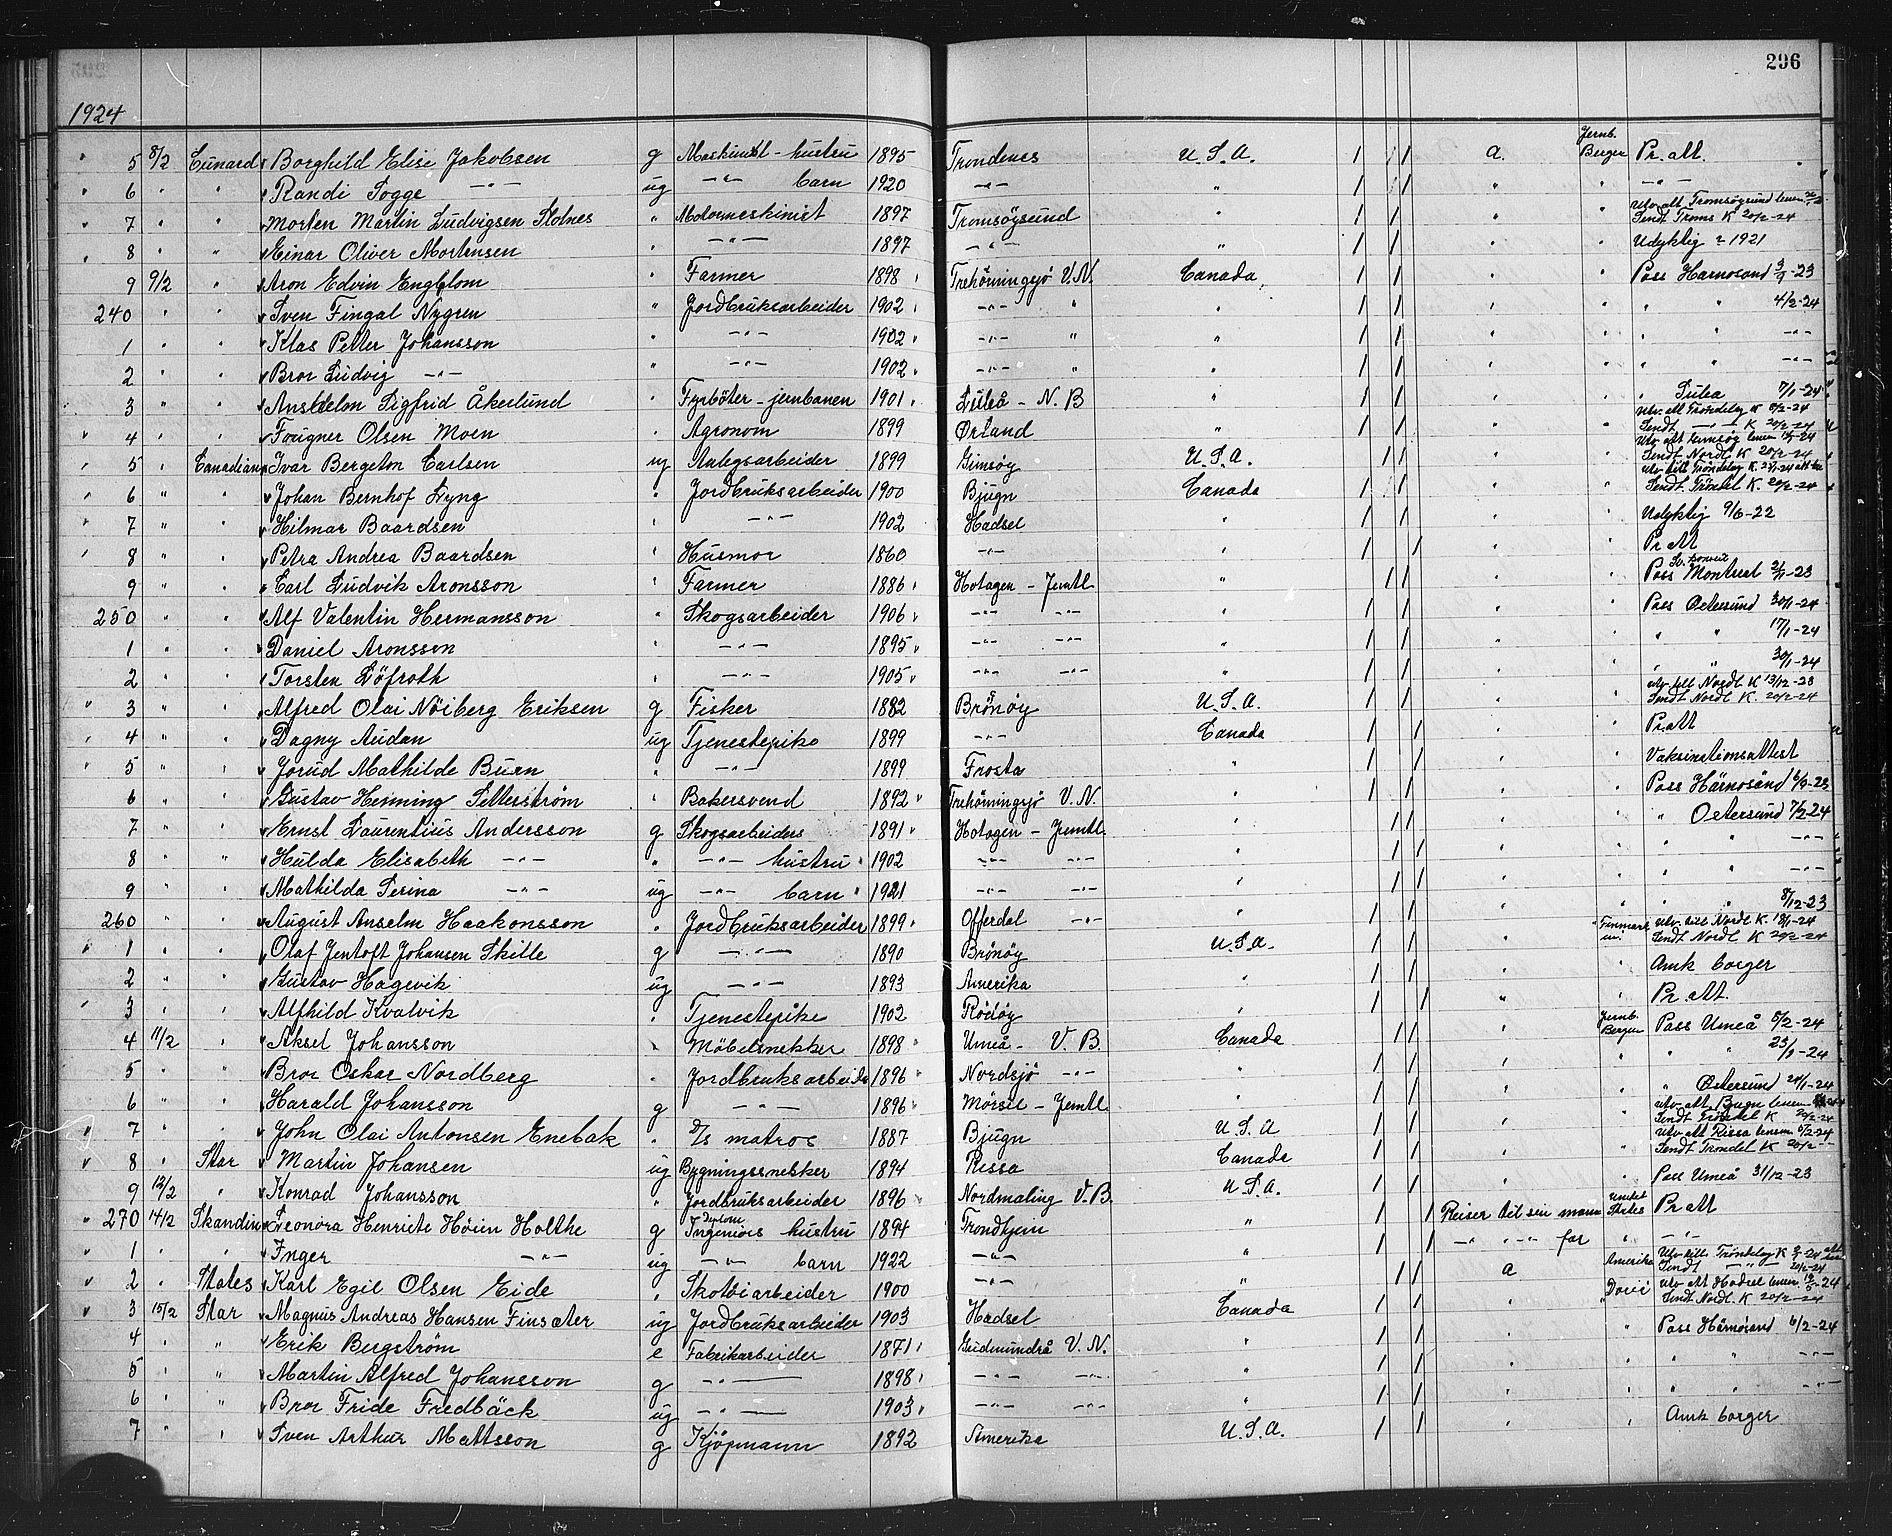 296
1924
" 5 8/2 Cunard Borghild Elise Jakobsen g Maskinist - hustru 1895 Trondenes U.S.A. / / / a. Jernb. Berger Pr. att.
" 6 " " Randi Togge —"— ug —"— barn 1920 —"— " / / / " " —"—
" 7 " " Morten Martin Ludvigsen Slotnes " Motormaskinist 1897 Tromsøysund " / / / " " Utv. att Tromsøysund lensm. Sendt Troms K 20/2-24
" 8 " " Einar Oliver Mortensen " —"— 1897 —"— " / / / " " Udyktig 1921
9 9/2 " Aron Edvin Engblom " Farmer 1898 Trehörningsjö V.N. Canada / / / " " Pass Harnosand 3/9-23
240 " " Sven Fingal Nygren " Jordbruksarbeider 1902 —"— " " / / / " " " " 4/2-24
1 " " Klas Petter Johansson " —"— 1902 —"— " " / / / " " " " —"—
2 " " Bror Ludvig —"— " —"— 1902 —"— " " / / / " " " " —"—
3 " " Anshelm Sigfrid Åkerlund " Fyrböter - jernbanen 1901 Luleå - N.B " / / / " " " Lulea 7/1-24
" 4 " " Fougner Olsen Moen " Agronom 1899 Ørland " / / / " " Utv. att Trøndelag K 8/2-24 Sendt —"— K 20/2-24
" 5 " Canadian Ivar Bergeton Carlsen ug Anlegsarbeider 1899 Gimsøy U.S.A. / / " " Utv att Gimsøy lensm 14/1-24 Sendt Nordl K 20/2-24
" 6 " " Johan Bernhof Lyng " Jordbruksarbeider 1900 Bjugn Canada / / / " " Utv till Trøndelag K. 27/1-24 Sendt Trøndel K. 20/2-24
" 7 " " Hilmar Baardsen " —"— 1902 Hadsel " / / " " Udyktig 9/6-22
" 8 " " Petra Andrea Baardsen " Husmor 1860 —"— " / / " " Pr att
9 " " Carl Ludvik Aronsson " Farmer 1886 Hotagen - Jemtl " / / " " Pass Montreal 2/11-23
250 " " Alf Valentin Hermansson " Skogsarbeider 1906 —"— —"— " / / " " Pass Östersund 30/1-24
1 " " Daniel Aronsson " —"— 1895 —"— —"— " / / " " " " 17/1-24
2 " " Torsten Löfroth " —"— 1905 —"— —"— " / / " " " " 30/1-24
" 3 " " Alfred Olai Nöiberg Eriksen g Fisker 1882 Brönöy U.S.A. / / " " utv till Nordl K 13/12-23 Sendt Nordl K. 20/2-24
" 4 " " Dagny Audan ug Tjenestepike 1899 —"— Canada / / " " Pr att
" 5 " " Jorud Mathilde Buen " —"— 1899 Frosta " / / " " Vaksinationsattest
6 " " Gustav Henning Setterström " Bakersvend 1892 Trehörningsjö V.N. " / / " " Pass Härnosand 6/9-23
7 " " Ernst Laurentius Andersson g Skogsarbeiders 1891 Hotagen - Jemtl. " / / " " " Ostersund 7/2-24
8 " " Hulda Elisabeth —"— " —"— hustru 1902 —"— —"— " / / " " " " —"—
9 " " Mathilda Serina —"— ug —"— barn 1921 —"— —"— " / / " " " " —"—
260 " " August Anselm Haakonsson " Jordbruksarbeider 1899 Offerdal —"— " / / " " " " 8/12-23
" 1 " " Olaf Jentoft Johansen Skille g —"— 1890 Brönöy U.S.A. / / " Finmark Utv. till Nordl K. 18/1-24 Sendt Nordl K 20/2-24
2 " " Gustav Hagevik ug —"— 1893 Amerika " / / " " Amk borger
" 3 " " Alfhild Kvalvik " Tjenestepike 1902 Rödöy " / / " " Pr. att.
4 11/2 " Aksel Johansson " Möbelsnekker 1898 Umeå - V.B. Canada / / " Jernb. Berger Pass Umeå 5/2-24
5 " " Bror Oskar Nordberg " Jordbruksarbeide 1896 Nordsjö —"— " / / " " " " 23/1-24
6 " " Harald Johansson g —"— 1896 Mörsil - Jemtl. " / / " " " Östersund 24/1-24
" 7 " " John Olai Antonsen Enebak " D/s matros 1887 Bjugn U.S.A / / " " utv. att Bjugn lensm Sendt Tröndel K 20/2-24
" 8 " Star Martin Johansen ug Bygningssnekker 1894 Rissa Canada / / " " Utv att Rissa lensm 5/2-24 Sendt Tröndel K 20/2 -"-
9 12/2 " Konrad Johansson " Jordbruksarbeider 1896 Nordmaling V.B. U.S.A. / / " " Pass Umeå 31/12-23
" 270 14/2 Skandin Leonora Henriete Höiin Holthe g Diplom Ingeniörs hustru 1894 Trondhjem " / / Reiser til sin mann United States Pr att
" 1 " " Inger —"— ug —"— barn 1922 —"— " / / —"— "—" far " —"—
" 2 " States Karl Egil Olsen Eide " Skotöiarbeider 1900 —"— " / / a Amerika Utv till Tröndelag K Sendt —"— 20/2-24
" 3 15/2 Star Magnus Andreas Hansen Finsæter ug Jordbruksarbeider 1903 Hadsel Canada / / " utv att Hadsel lensm Sendt Nordl. K 20/2-24
4 " " Erik Bergström e Fabrikarbeider 1871 Gudmundrå V.N. " / / " " Pass Härnösand 6/2-24
5 " " Martin Alfred Johansson g —"— 1898 —"— —"— " / / " " " " —"—
6 " " Bror Fride Fredbäck ug —"— 1903 —"— —"— " / / " " " " —"—
7 " " Sven Arthur Mattsson g Kjöpmann 1892 Amerika U.S.A. / / " " Amk borger